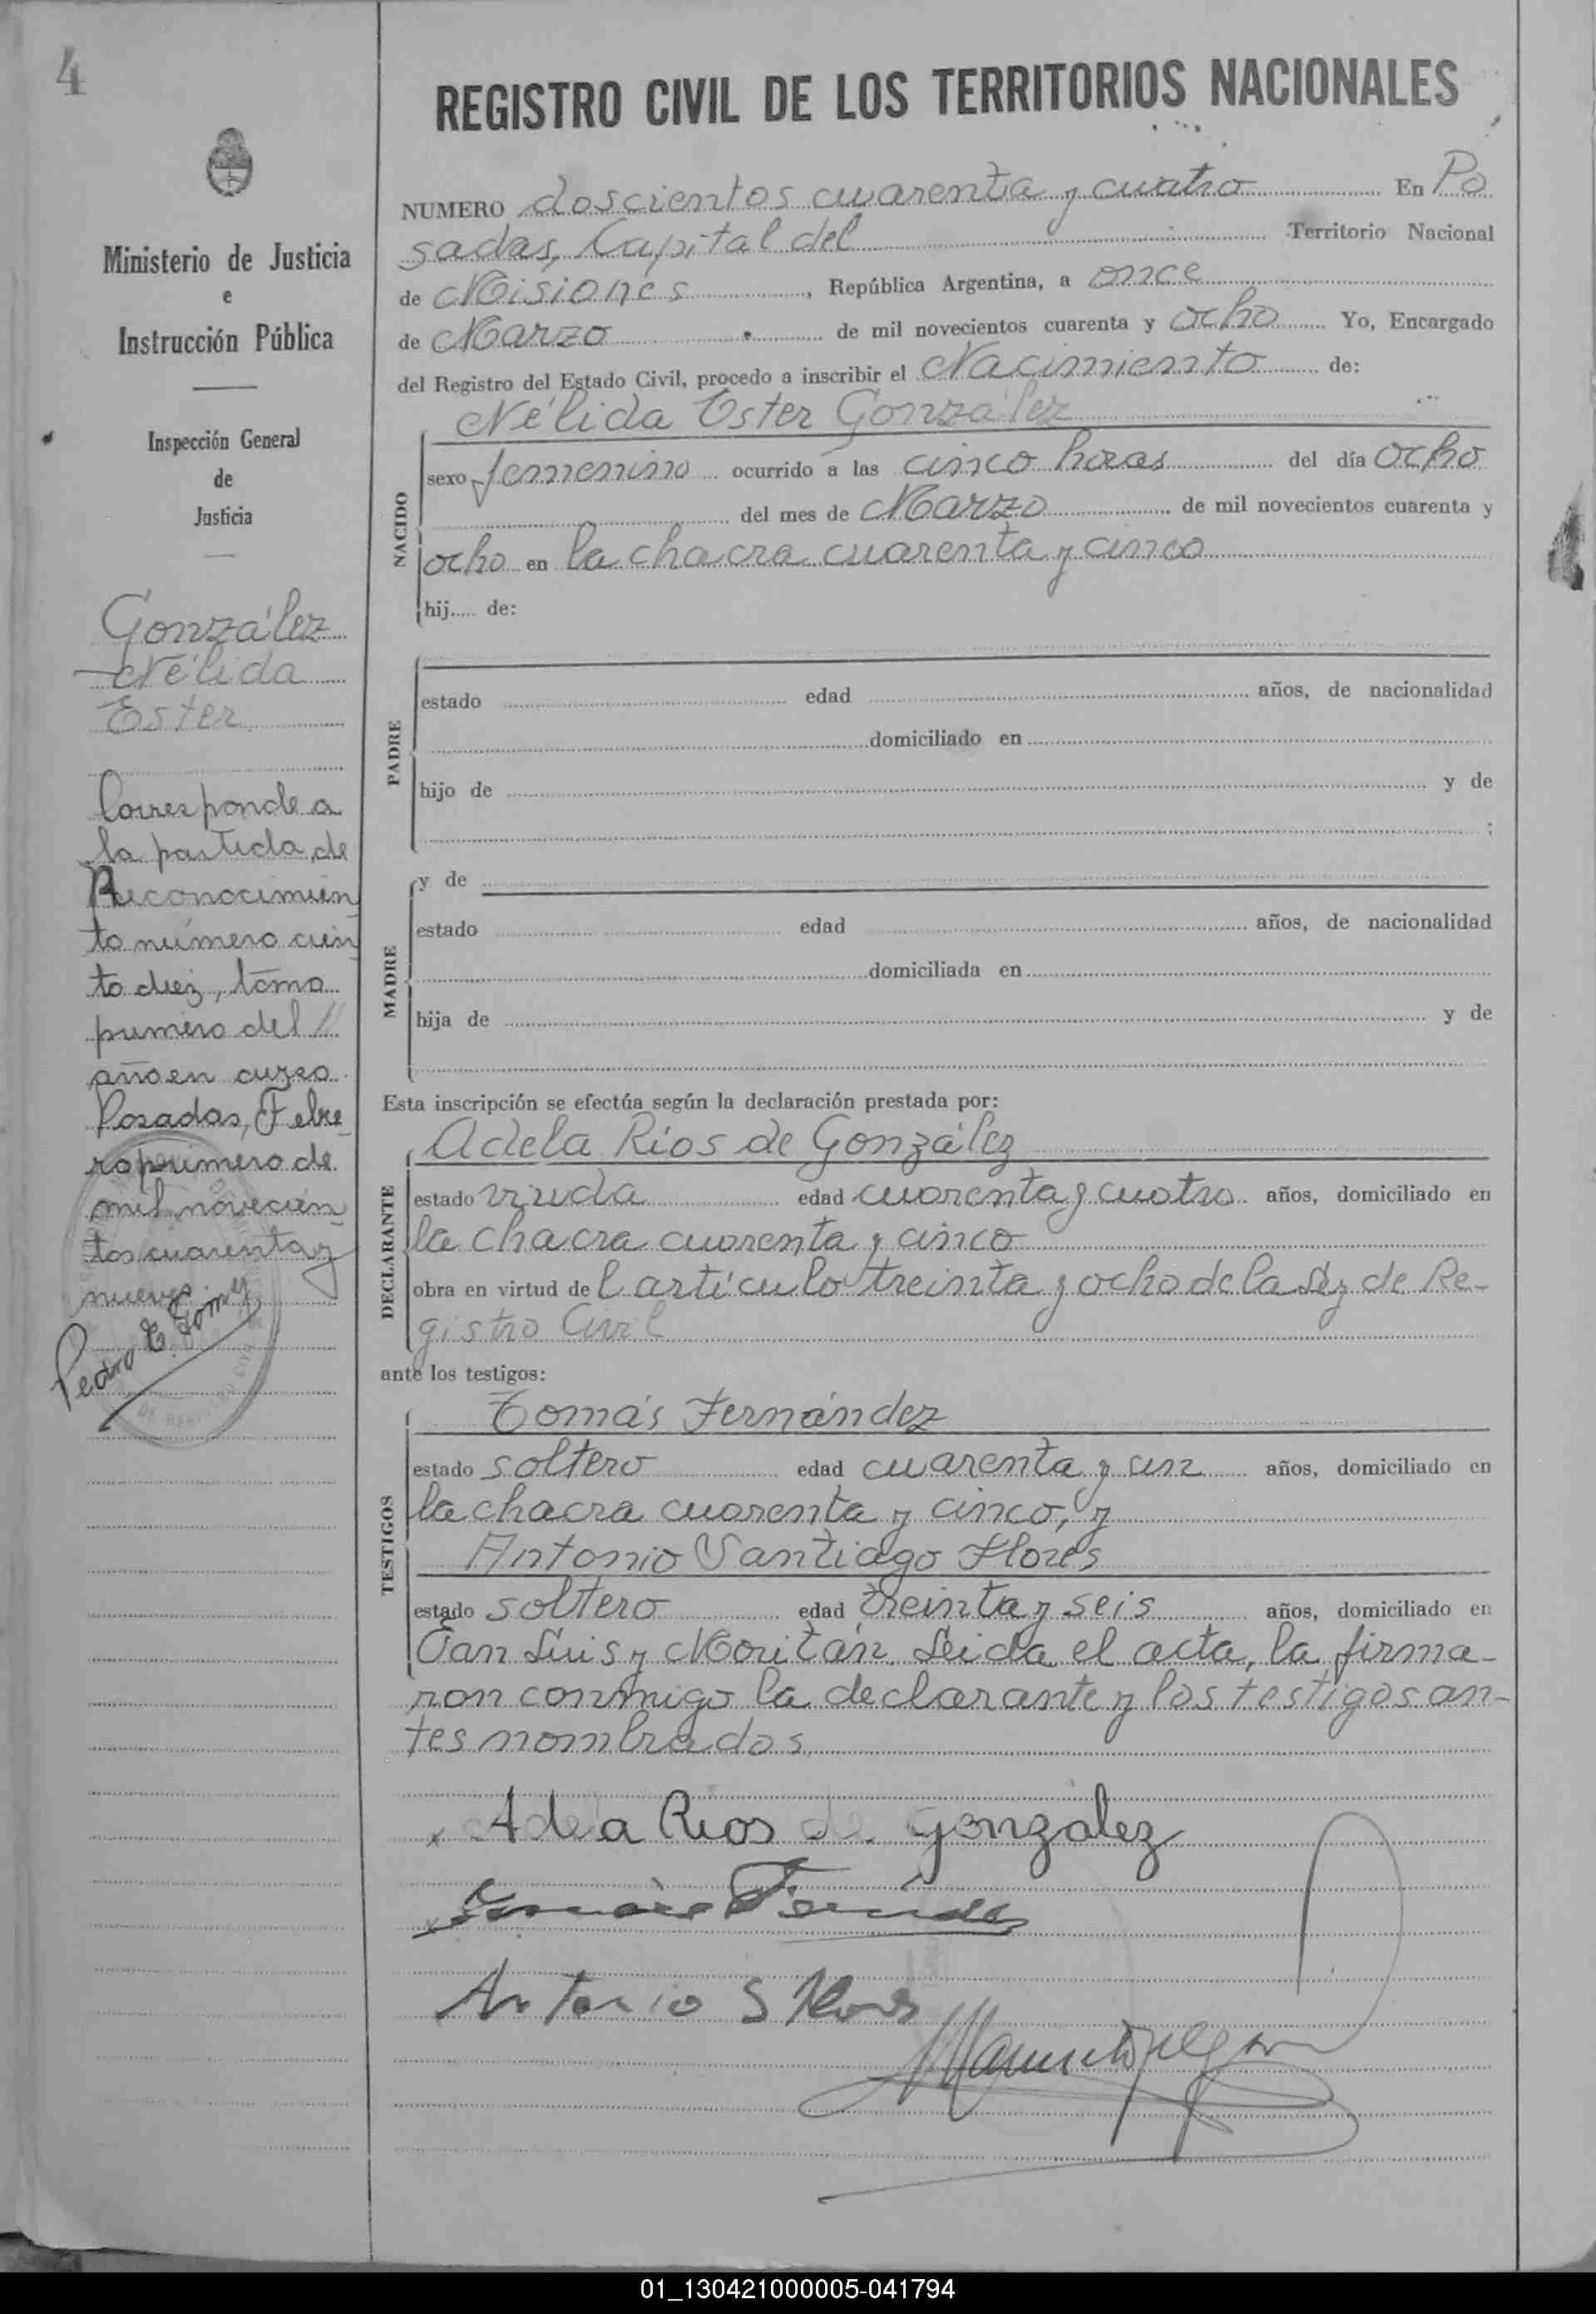 4
REGISTRO CIVIL DE LOS TERRITORIOS NACIONALES
Ministerio de Justicia
e
Instrucción Pública
Inspección General
de
Justicia
González
Nélida
Ester
Corresponde a
la partida de
Reconocimien
to número cien
to diez, tomo
primero del
año en curso
Posadas, Febre
ro primero de
mil novecien
tos cuarenta y
nueve.
Pedro E. Gomez
NUMERO doscientos cuarenta y cuatro En Po
sadas, Capital del Territorio Nacional
de Misiones, República Argentina, a once
de Marzo de mil novecientos cuarenta y ocho Yo, Encargado
del Registro del Estado Civil, procedo a inscribir el Nacimiento de:
Nélida Ester González
NACIDO
sexo femenino ocurrido a las cinco horas del día ocho
del mes de Marzo de mil novecientos cuarenta y
ocho en la chacra cuarenta y cinco
hij..... de:
PADRE
estado edad años, de nacionalidad
domiciliado en
hijo de y de
;
MADRE
y de
estado edad años, de nacionalidad
domiciliada en
hija de y de
Esta inscripción se efectúa según la declaración prestada por:
Adela Ríos de González
DECLARANTE
estado viuda edad cuarenta y cuatro años, domiciliado en
la chacra cuarenta y cinco
obra en virtud de l artículo treinta y ocho de la Ley de Re-
gistro Civil
ante los testigos:
TESTIGOS
Tomás Fernández
estado soltero edad cuarenta y un años, domiciliado en
la chacra cuarenta y cinco, y
Antonio Santiago Flores
estado soltero edad treinta y seis años, domiciliado en
San Luis y Moritán. Leida el acta, la firma-
ron conmigo la declarante y los testigos an-
tes nombrados.
x Adela Rios de Gonzalez
Antonio S Flores
01_130421000005-041794